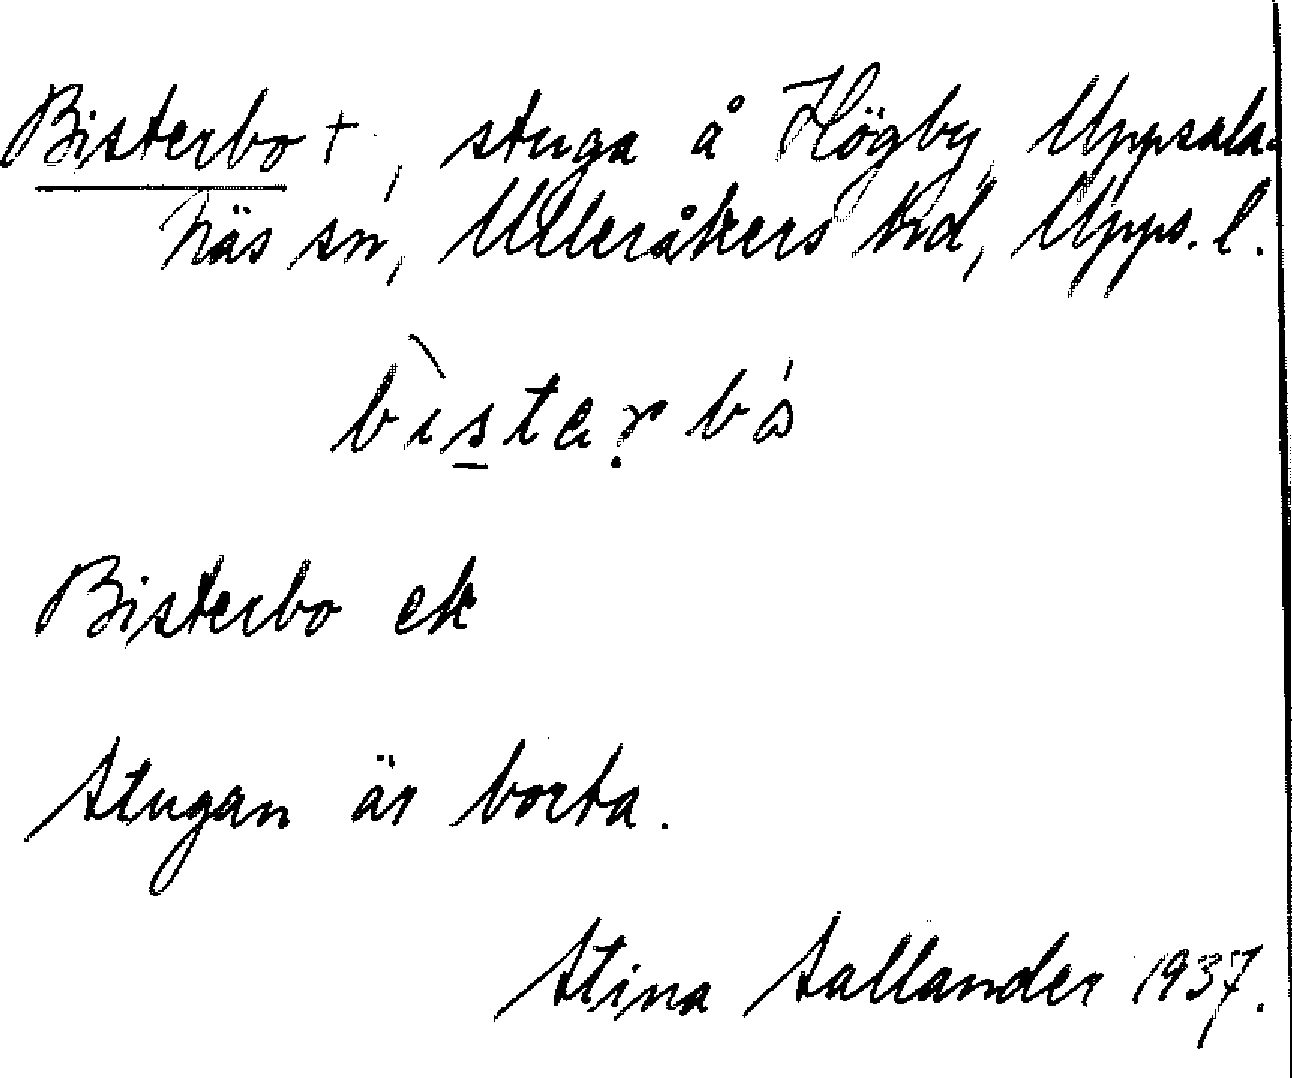 Bisterbo †, stuga å Högby, Uppsala-
Näs sn, Ulleråkers hd, Upps. l.
bìstarbó
Bisterbo ek
Stugan är borta.
Stina Sallander 1937.